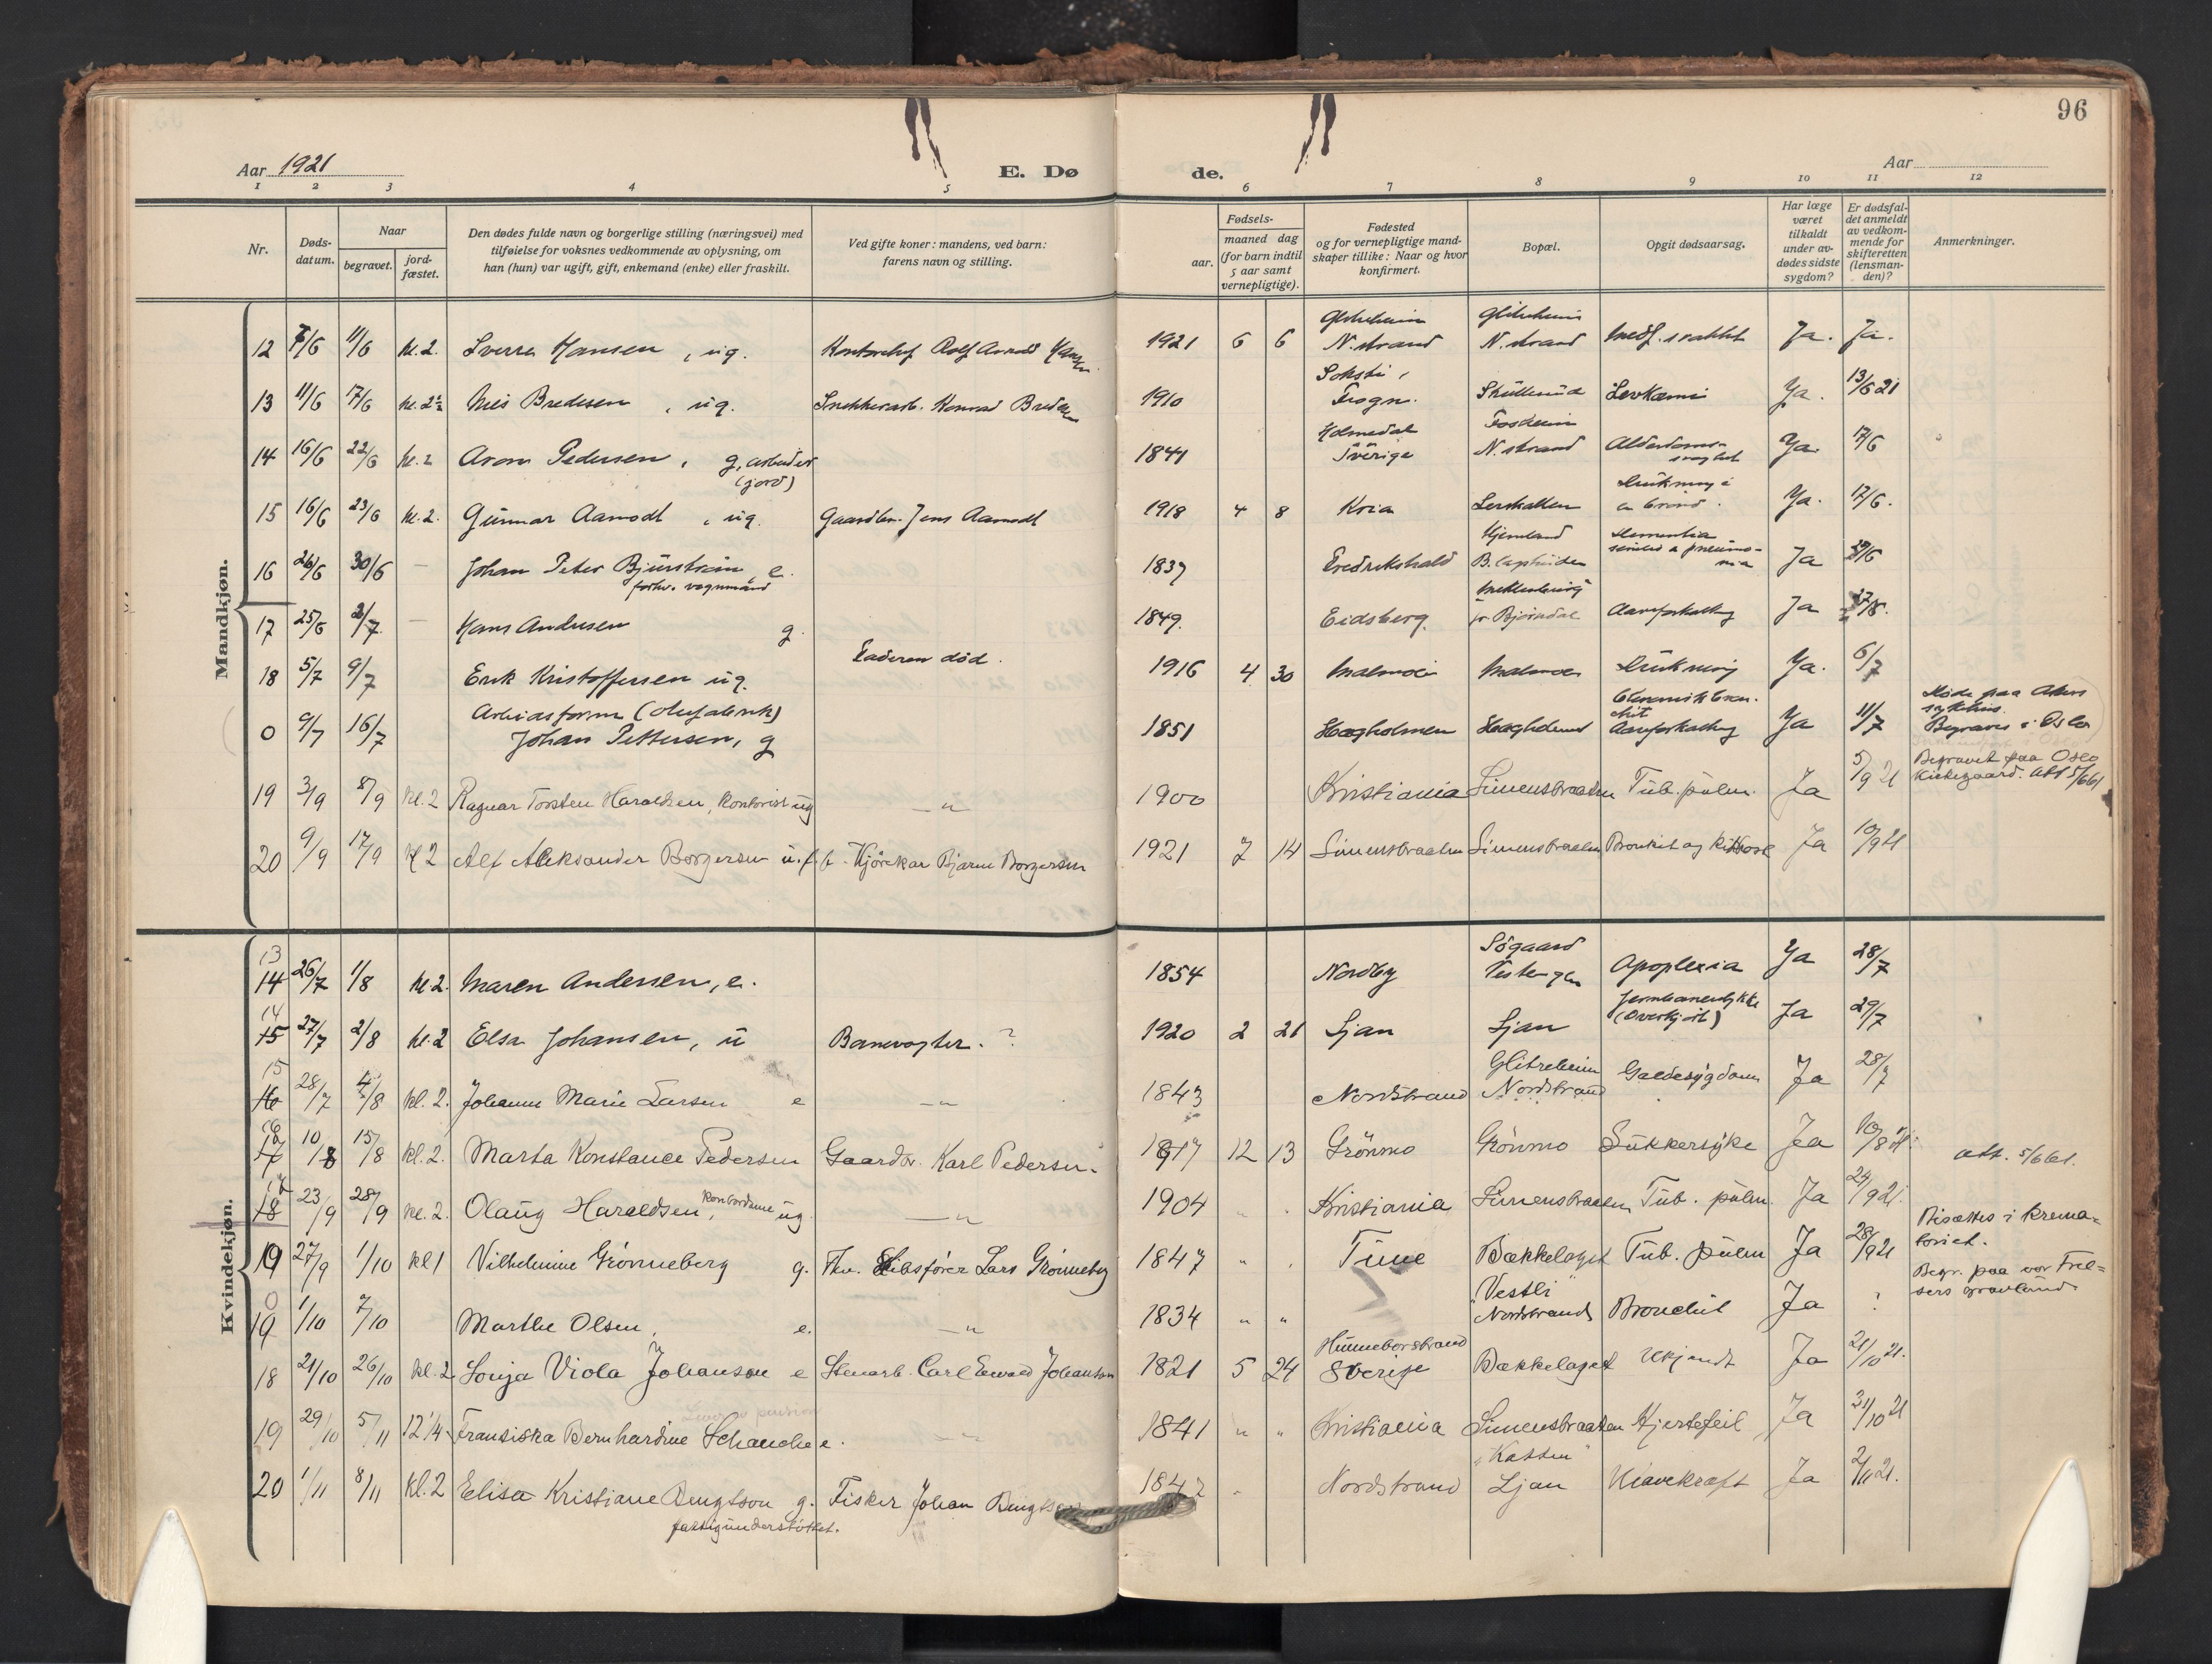 96
Aar 1921
E. Dø
de.
Aar
1 2 3 4 5 6 7 8 9 10 11 12
Nr.
Døds-
datum.
Naar
begravet.
jord-
fæstet.
Den dødes fulde navn og borgerlige stilling (næringsvei) med
tilføielse for voksnes vedkommende av oplysning, om
han (hun) var ugift, gift, enkemand (enke) eller fraskilt.
Ved gifte koner: mandens, ved barn:
farens navn og stilling.
Fødsels-
aar.
maaned dag
(for barn indtil
5 aar samt
vernepligtige).
Fødested
og for vernepligtige mand-
skaper tillike: Naar og hvor
konfirmert.
Bopæl.
Opgit dødsaarsag.
Har læge
været
tilkaldt
under av-
dødes sidste
sygdom?
Er dødsfal-
det anmeldt
av vedkom-
mende for
skifteretten
(lensman-
den)?
Anmerkninger.
Mandkjøn.
12 7/6 11/6 kl. 2. Sverre Hansen, ug. Kontorchef Rolf Arnold Hansen 1921 6 6 N. strand N. strand Medf. svakhet Ja. Ja.
13 11/6 17/6 Nils Bredesen, ug. Snekkerarb. Konrad Bredesen 1910 Frogn. Skullerud Levkæmi Ja. 13/6 21
14 16/6 22/6 kl. 2 Aron Pedersen, g, arbeider
(jord) 1841 Holmedal
Sverige N. strand Alderdoms-
svaghet Ja 17/6
15 16/6 23/6 kl. 2. Gunnar Aamodt, ug. Gaardbr. Jens Aamodt 1918 4 8 Kria Lerskallen Drukning i
en brønd. Ja. 17/6.
16 26/6 30/6 — Johan Peter Bjurstrøm e.
forhv. vognmand 1839 Fredrikshald Dementia
senilis & pneumo-
nia Ja
17 25/6 2/7 — Hans Andersen g. 1849. Eidsberg. Bjørndal Aareforkalkning Ja
18 5/7 9/7 Erik Kristoffersen ug. Faderen død. 1916 4 30 Malmøen Malmøen Drukning Ja. 6/7
0 9/7 16/7 Arbeidsform
Johan Pettersen, g 1851 Hægholmen Aareforkalkning Ja 11/7 Døde paa Akers
sykehus.
Begraves i Oslo
19 3/9 8/9 kl. 2 Ragnar Torsten Haraldsen, kontorist ug — " 1900 Kristiania Simensbraaten Tub. pulm. Ja 5/9 21 Begravet paa Oslo
Kirkegaard. att 5/6 61
20 9/9 17/9 kl 2 Alf Aleksander Borgersen u. f. b. Kjørekar Bjarne Borgersen 1921 7 14 Simensbraaten Simensbraaten Bronkit og Kikhoste Ja 10/9 21
Kvindekjøn.
13
14 26/7 1/8 kl 2. Maren Andersen, e. 1854 Nordby Søgaard Apoplexia Ja 28/7
14
15 27/7 2/8 kl. 2 Elsa Johansen, u Barnevogter. ? 1920 2 21 Ljan Ljan Jernbaneulykke
(Overkjørt) Ja 29/7
15
16 28/7 4/8 kl. 2. Johanne Marie Larsen e — " 1843 Nordstrand Glitreheim
Nordstrand Galdesygdom Ja 28/7
16
17 10/8 15/8 kl. 2. Marta Konstance Pedersen Gaardbr. Karl Pedersen 1917 12 13 Grönmo Grönmo Sukkersyke Ja 10/8 21. att. 5/6 61.
17
18 23/9 28/9 kl. 2. Olaug Haraldsen, kontordame ug. — " 1904 Kristiania Simensbraaten Tub. pulm. Ja 24/9 21.
19 27/9 1/10 kl 1 Vilhelmine Grönneberg g. Fhv. Skibsfører Lars Grönneberg 1847 Tune Bækkelaget Tub. pulm Ja 28/9 21 Bisættes i krema-
toriet.
0
19 1/10 7/10 Marthe Olsen, e. — " 1834 " " "Vestli"
Nordstrand Bronchit Ja ? Begr. paa vor Frel-
sers gravlund.
18 21/10 26/10 kl. 2 Sonja Viola Johanson e Stenarb. Carl Ewald Johanson 1821 5 24 Hunnebostrand
Sverige Bækkelaget Ukjendt Ja 21/10 21.
19 29/10 5/11 12 1/4 Fransiska Bernhardine Schanche e. — " 1841 " " Kristiania Simensbraaten Hjertefeil Ja 31/10 21
20 1/11 8/11 kl. 2 Elisa Kristiane Bengtson g. Fisker Johan Bengtson
fattigunderstöttet. 1847 Nordstrand "Kasten"
Ljan Mavekræft Ja 2/11 21.